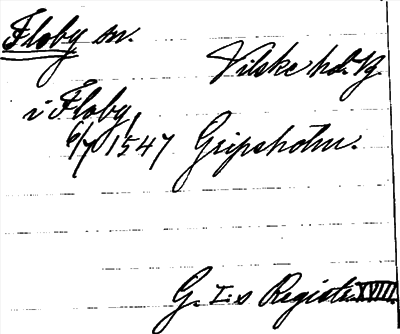 Floby sn.
Vilske hd. Vg.
i Floby,
6/7 1547 Gripsholm.
G. I:s Registr. XVIII